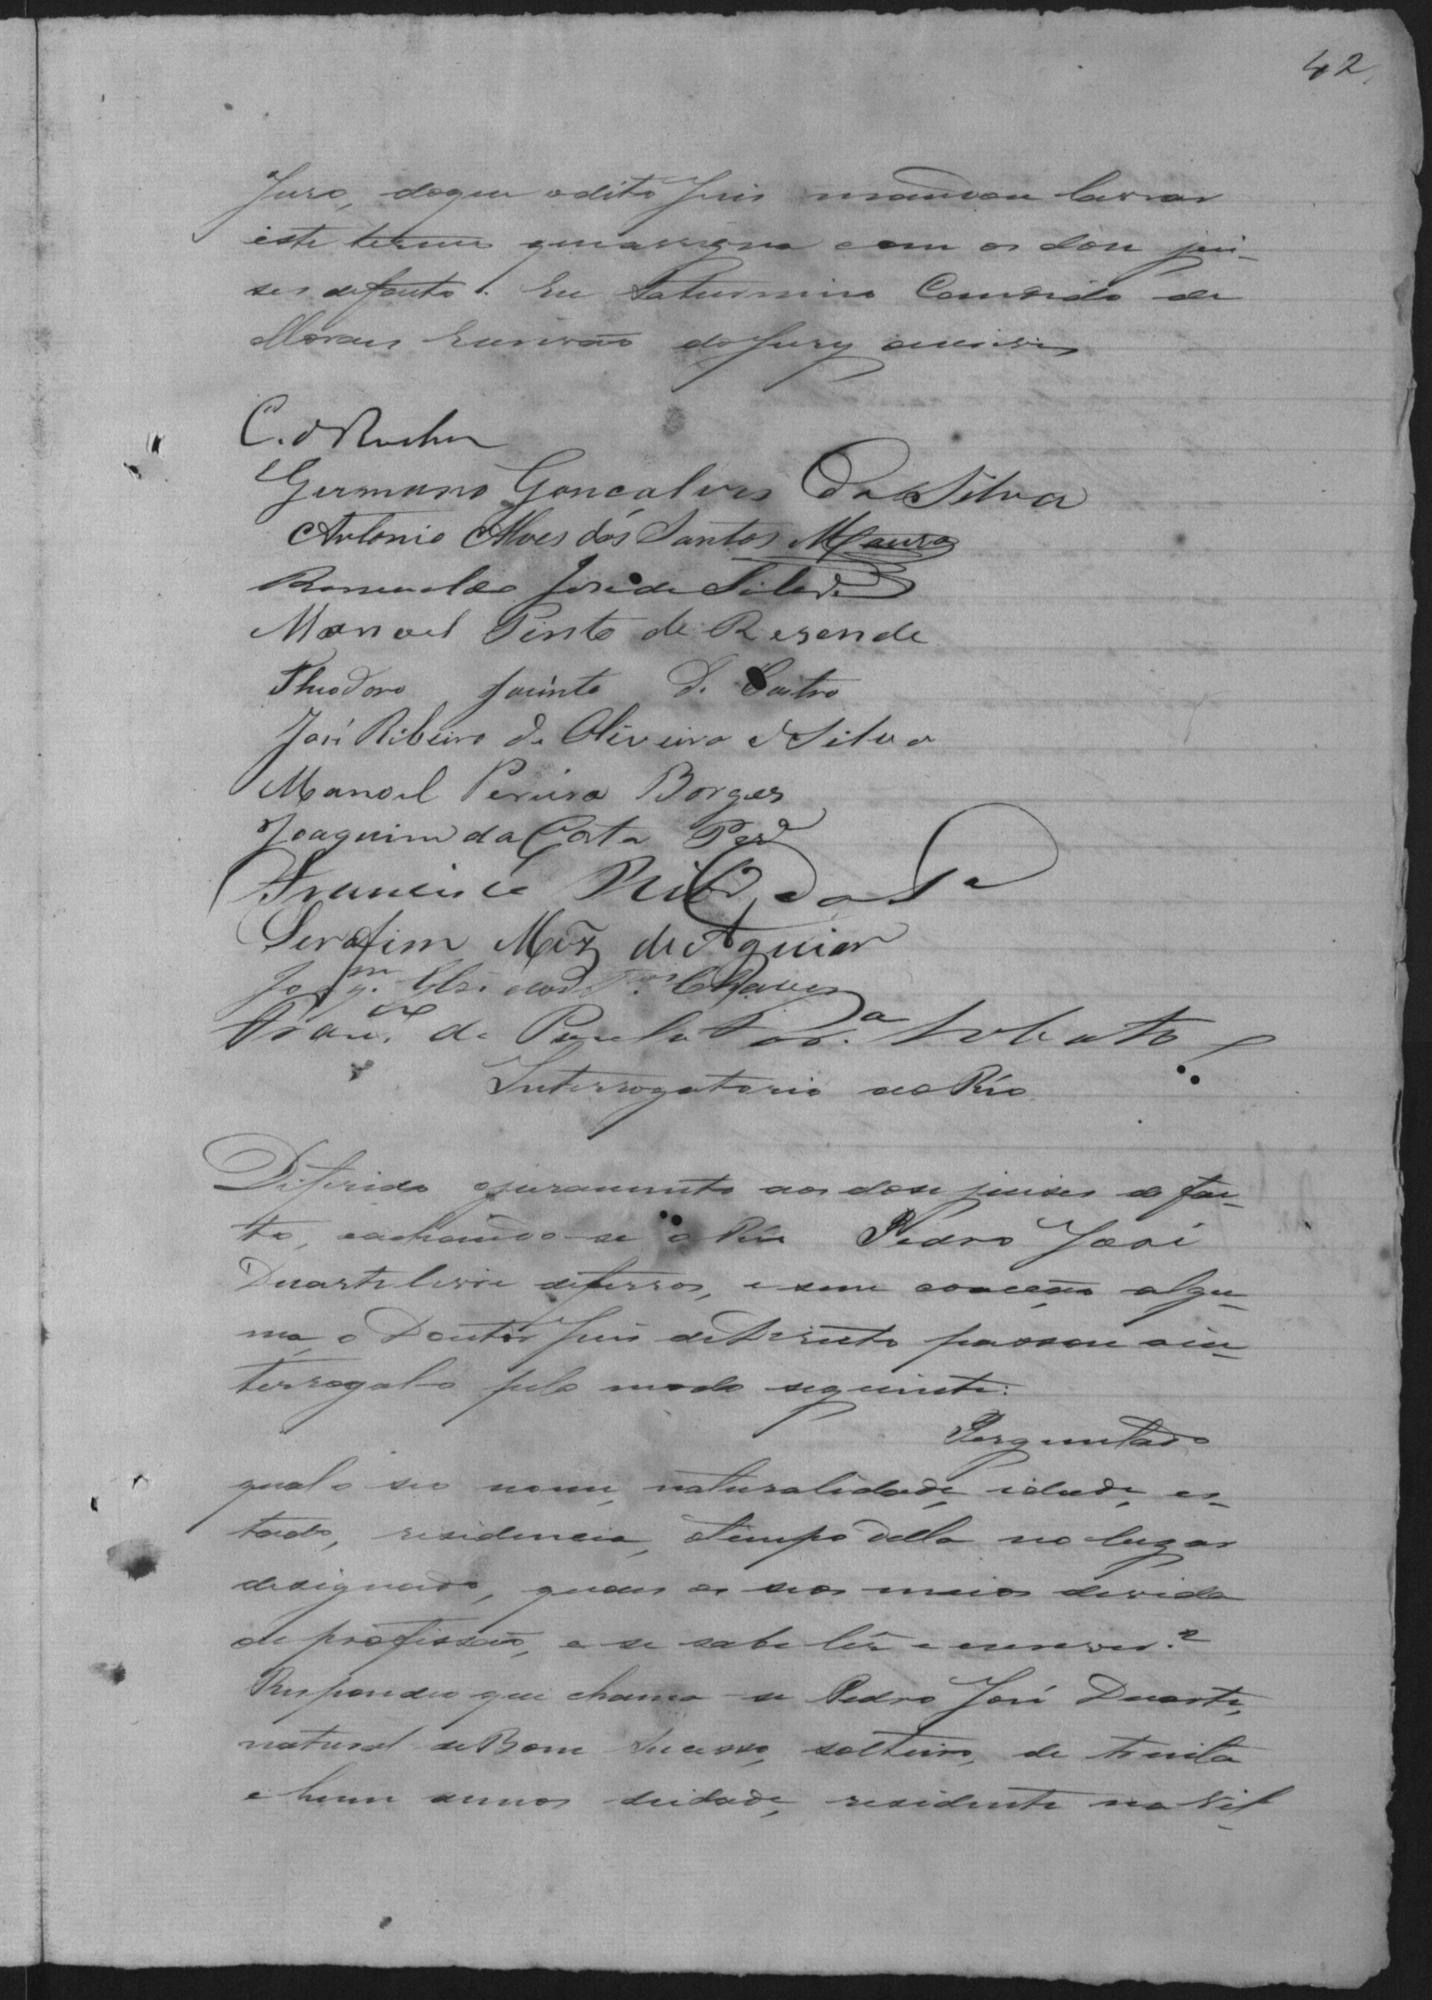 42
Juro, doque odito Juis mandou lavrar
este termo que assigna com os dose jui-
ses defacto. Eu Saturnino Candido de
Moraes Escrivão do Jury escrivi
C. da Rocha
Germano Gonçalves da Silva
Antonio Alves dos Santos Moura
Romualdo José de
Manoel Pinto de Resende
Theodoro Jacinto de Castro
José Ribeiro de Oliveira e Silva
Manoel Pereira Borges
Joaquim da Costa Per.ª
Francisco Rib.º da S.ª
Serafim Miz de Aguiar
Joaq.m Chaves
Fran.co de Paula Lobato
Interrogatorio ao Réo
Diferido ojuramento aos dose juises de fac-
to, eachando-se o Réo Pedro José
Duarte livre deferros, e sem coacção algu-
ma, o Doutor Juis de Direito passou ain-
terrogal-o pelo modo seguinte:
Perguntado
qual o seo nome, naturalidade, idade, es-
tado, residencia, etempo della no lugar
designado, quaes os seos meios devida
de profissão, e se sabe lêr e escrever?
Respondeo que chama-se Pedro José Duarte,
natural de Bom Sucesso, solteiro, de trinta
e hum annos deidade, residente na Vil-